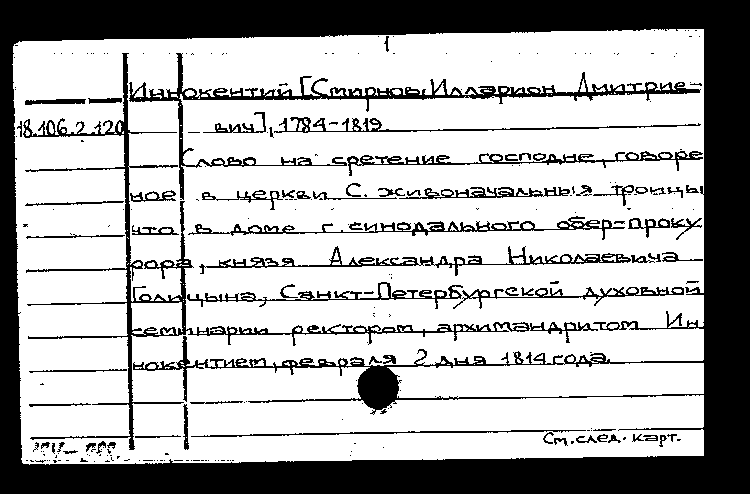 1
Иннокентий [Смирнов, Илларион Дмитрие-
18.106.2.120 вич], 1784-1819.
Слово на сретение господне, говоре
ное в церкви С. живоначальныя троицы
что в доме г. синодального обер-проку
рора, князя Александра Николаевича
Голицына, Санкт-Петербургской духовной
семинарии ректором, архимандритом Ин
нокентием, февраля 2 дня 1814 года.
См. след. карт.